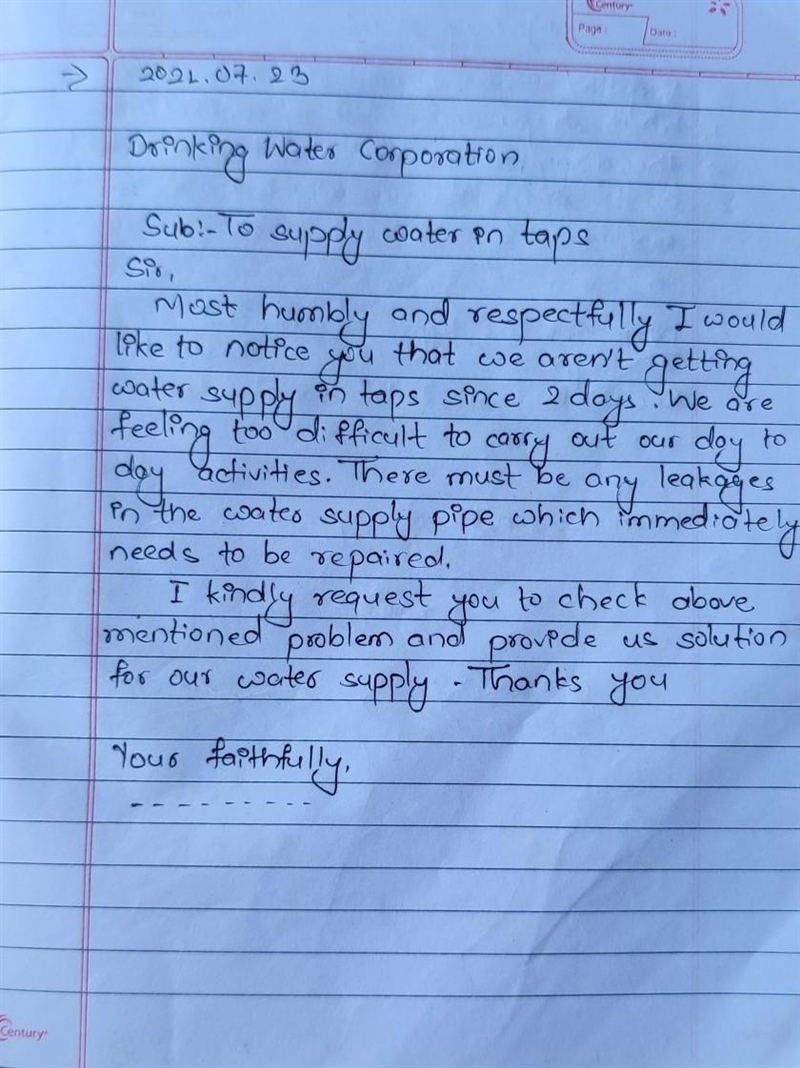 Century
Page :
Date :
→ 2021.07.23
Drinking Water Corporation
Sub:- To supply water in taps
Sir,
Most humbly and respectfully I would
like to notice you that we aren't getting
water supply in taps since 2 days. We are
feeling too difficult to carry out our day to
day activities. There must be any leakages
in the water supply pipe which immediately
needs to be repaired.
I kindly request you to check above
mentioned problem and provide us solution
for our water supply. Thanks you
Your faithfully,
- - - - - - - - -
Century